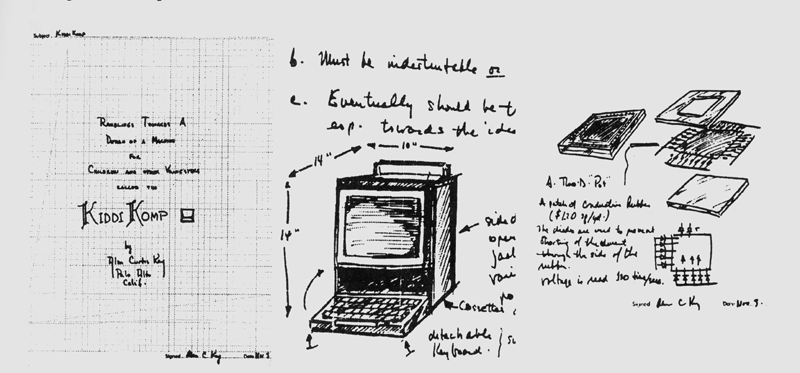 Subject: KIDDI KOMP
RAMBLINGS TOWARDS A
DESIGN OF A MACHINE
FOR
CHILDREN AND OTHER
CALLED THE
KIDDI KOMP
by
Alan Curtis Kay
Palo Alto
Calif.
Signed Alan C Kay Date Nov. 3.
b. Must be indestructable or
c. Eventually should be t
esp. towards the "idea
14"
10"
14"
side
open
Cassettes
detachable
Keyboard.
A. Two-D "Pot"
A patch of conductive Rubber
The diodes are used to prevent
shorting of the current
through the side of the
rubber.
Voltage is read
Signed Alan C Kay Date Nov. 3.